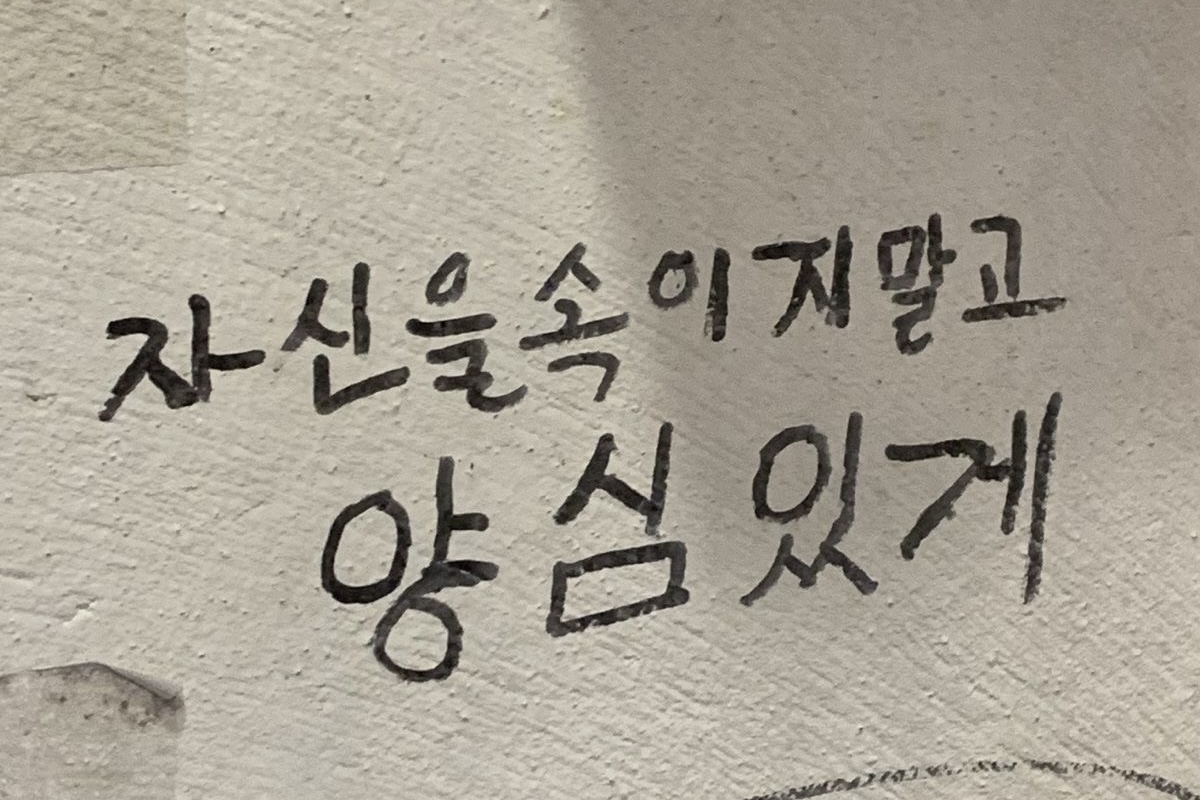 자신을속이지말고
양심있게